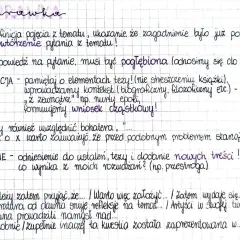 rawka
finicja pojęcia z tematu, ukazanie, że zagadnienie było już po
wtórzenie pytania z tematu!
powiedź na pytanie, musi być pogłębiona (odnosimy się do
CJA - pamiętaj o elementach tezy! (nie streszczamy książki),
wprowadzamy kontekst (biograficzny, filozoficzny etc) -
"z zewnątrz" np. nurty epoki,
formułujemy wniosek cząstkowy!
y również uwzględnić bohatera..."...
o x warto zauważyć, że przed podobnym problemem stanął
IE - odniesienie do ustaleń, tezy i dodanie nowych treści!
co wynika z moich rozważań? (np. przestroga)
leży zatem przyjąć, że... / Warto więc założyć... / Zatem wydaje się
od dawna snuje refleksje na temat... / Artyści w swojej twó
prowadzali namysł nad...
bnie/zupełnie inaczej ta kwestia została zaprezentowana w